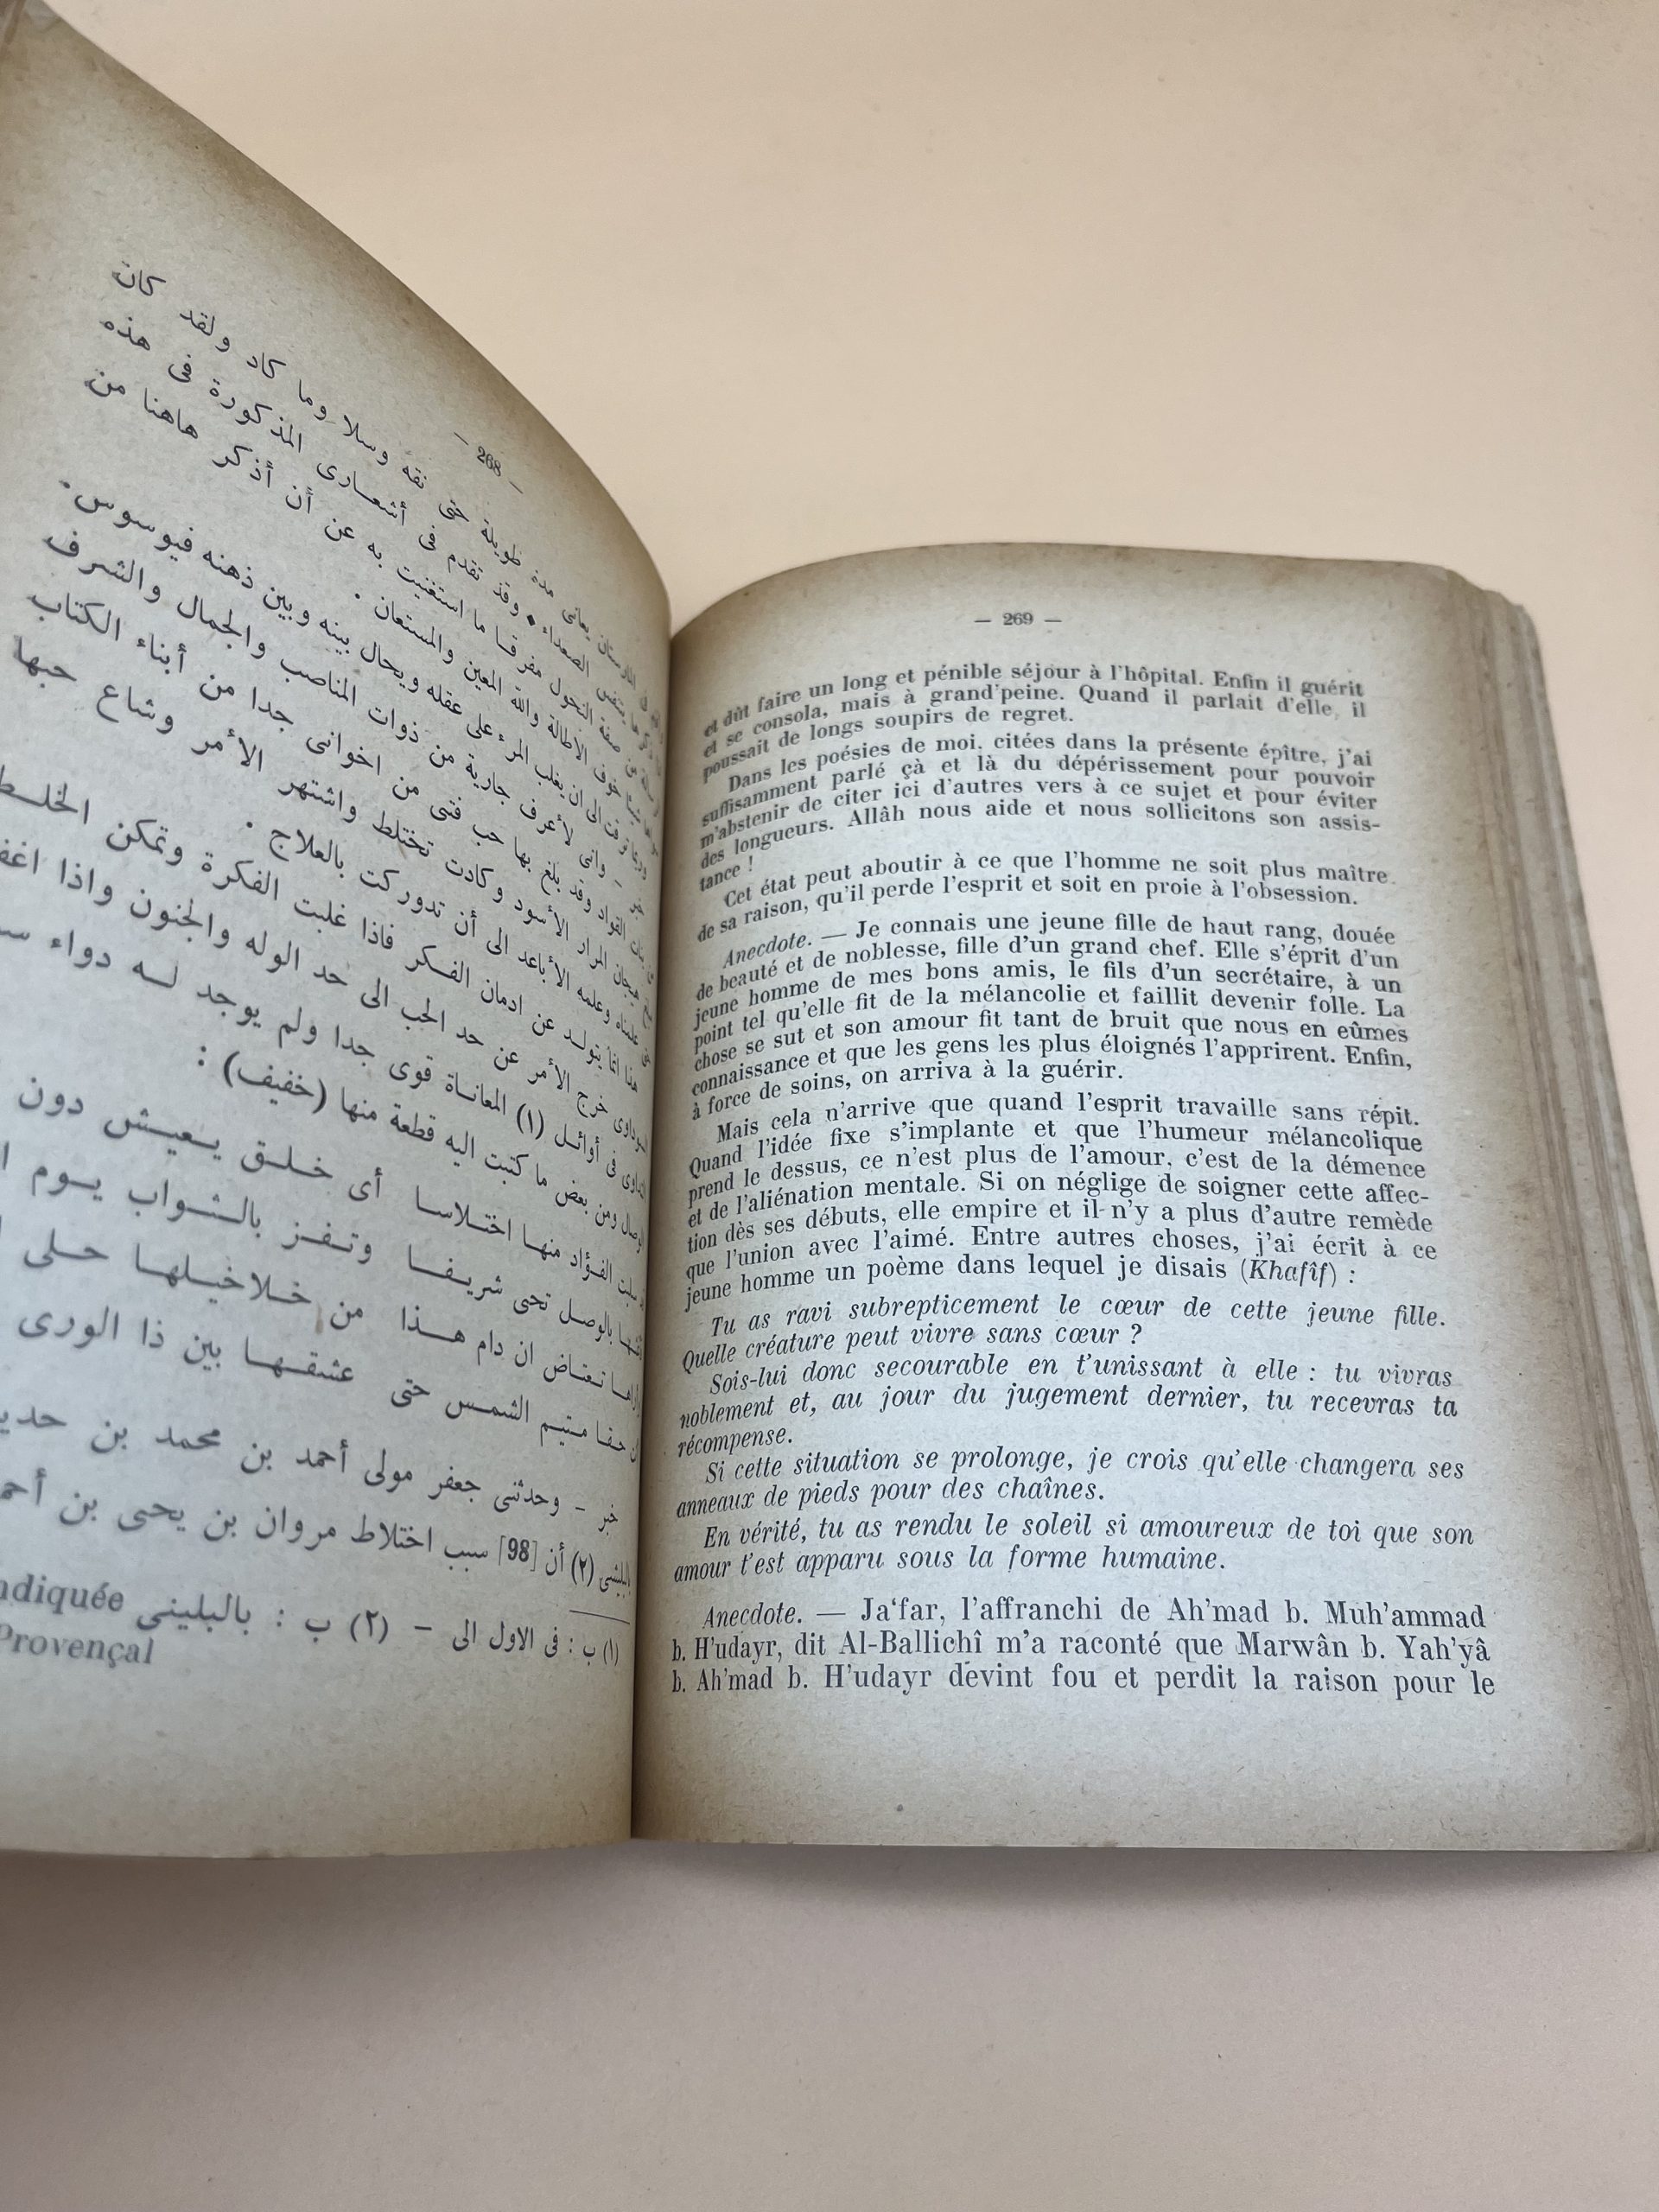 — 268 —
مدة طويلة حتى نقه وسلا وما كاد ولقد كان
الصعداء • وقد تقدم فى أشعارى المذكورة فى هذه
صفة النحول مفرقا ما استغنيت به عن أن أذكر هاهنا من
خوف الاطالة والله المعين والمستعان •
الى ان يغلب المرء على عقله ويحال بينه وبين ذهنه فيوسوس •
خبر — وانى لأعرف جارية من ذوات المناصب والجمال والشرف
القواد وقد بلغ بها حب فتى من اخوانى جدا من أبناء الكتاب
هيجان المرار الأسود وكادت تختلط واشتهر الأمر وشاع حبها
علمناه وعلمه الأباعد الى أن تدوركت بالعلاج •
هذا انما يتولد عن ادمان الفكر فاذا غلبت الفكرة وتمكن الخلط
خرج الأمر عن حد الحب الى حد الوله والجنون واذا اغفل
فى أوائل (١) المعاناة قوى جدا ولم يوجد له دواء
ومن بعض ما كتبت اليه قطعة منها (خفيف) :
سلبت الفؤاد منها اختلاسا أى خلق يعيش دون
بالوصل تحى شريفا وتفز بالثواب يوم
تعتاض ان دام هذا من خلاخيلها حلى
حقا متيم الشمس حتى عشقها بين ذا الورى
خبر — وحدثنى جعفر مولى أحمد بن محمد بن
(٢) أن [98] سبب اختلاط مروان بن يحيى بن
(١) ب : فى الاول الى — (٢) ب : بالبلينى ndiquée
Provençal
— 269 —
et dût faire un long et pénible séjour à l'hôpital. Enfin il guérit
et se consola, mais à grand'peine. Quand il parlait d'elle, il
poussait de longs soupirs de regret.
Dans les poésies de moi, citées dans la présente épître, j'ai
suffisamment parlé çà et là du dépérissement pour pouvoir
m'abstenir de citer ici d'autres vers à ce sujet et pour éviter
des longueurs. Allâh nous aide et nous sollicitons son assis-
tance !
Cet état peut aboutir à ce que l'homme ne soit plus maître
de sa raison, qu'il perde l'esprit et soit en proie à l'obsession.
Anecdote. — Je connais une jeune fille de haut rang, douée
de beauté et de noblesse, fille d'un grand chef. Elle s'éprit d'un
jeune homme de mes bons amis, le fils d'un secrétaire, à un
point tel qu'elle fit de la mélancolie et faillit devenir folle. La
chose se sut et son amour fit tant de bruit que nous en eûmes
connaissance et que les gens les plus éloignés l'apprirent. Enfin,
à force de soins, on arriva à la guérir.
Mais cela n'arrive que quand l'esprit travaille sans répit.
Quand l'idée fixe s'implante et que l'humeur mélancolique
prend le dessus, ce n'est plus de l'amour, c'est de la démence
et de l'aliénation mentale. Si on néglige de soigner cette affec-
tion dès ses débuts, elle empire et il n'y a plus d'autre remède
que l'union avec l'aimé. Entre autres choses, j'ai écrit à ce
jeune homme un poème dans lequel je disais (Khafîf) :
Tu as ravi subrepticement le cœur de cette jeune fille.
Quelle créature peut vivre sans cœur ?
Sois-lui donc secourable en t'unissant à elle : tu vivras
noblement et, au jour du jugement dernier, tu recevras ta
récompense.
Si cette situation se prolonge, je crois qu'elle changera ses
anneaux de pieds pour des chaînes.
En vérité, tu as rendu le soleil si amoureux de toi que son
amour t'est apparu sous la forme humaine.
Anecdote. — Ja‘far, l'affranchi de Ah'mad b. Muh'ammad
b. H'udayr, dit Al-Ballichî m'a raconté que Marwân b. Yah'yâ
b. Ah'mad b. H'udayr devint fou et perdit la raison pour le